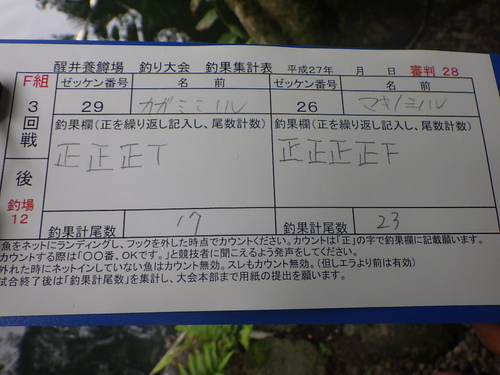 醒井養鱒場 釣り大会 釣果集計表 平成27年 月 日 審判 28
F組 ゼッケン番号 名 前 ゼッケン番号 名 前
3回戦 29 カガミミハル 26 マキノミハル
釣果欄（正を繰り返し記入し、尾数計数） 釣果欄（正を繰り返し記入し、尾数計数）
後 正正正T 正正正正F
釣場
12 釣果計尾数 17 釣果計尾数 23
魚をネットにランディングし、フックを外した時点でカウントください。カウントは「正」の字で釣果欄に記載願います。
カウントする際は「〇〇番、OKです。」と競技者に聞こえるよう発声をしてください。
外れた時にネットインしていない魚はカウント無効。スレもカウント無効。（但しエラより前は有効）
試合終了後は「釣果計尾数」を集計し、大会本部まで用紙の提出を願います。